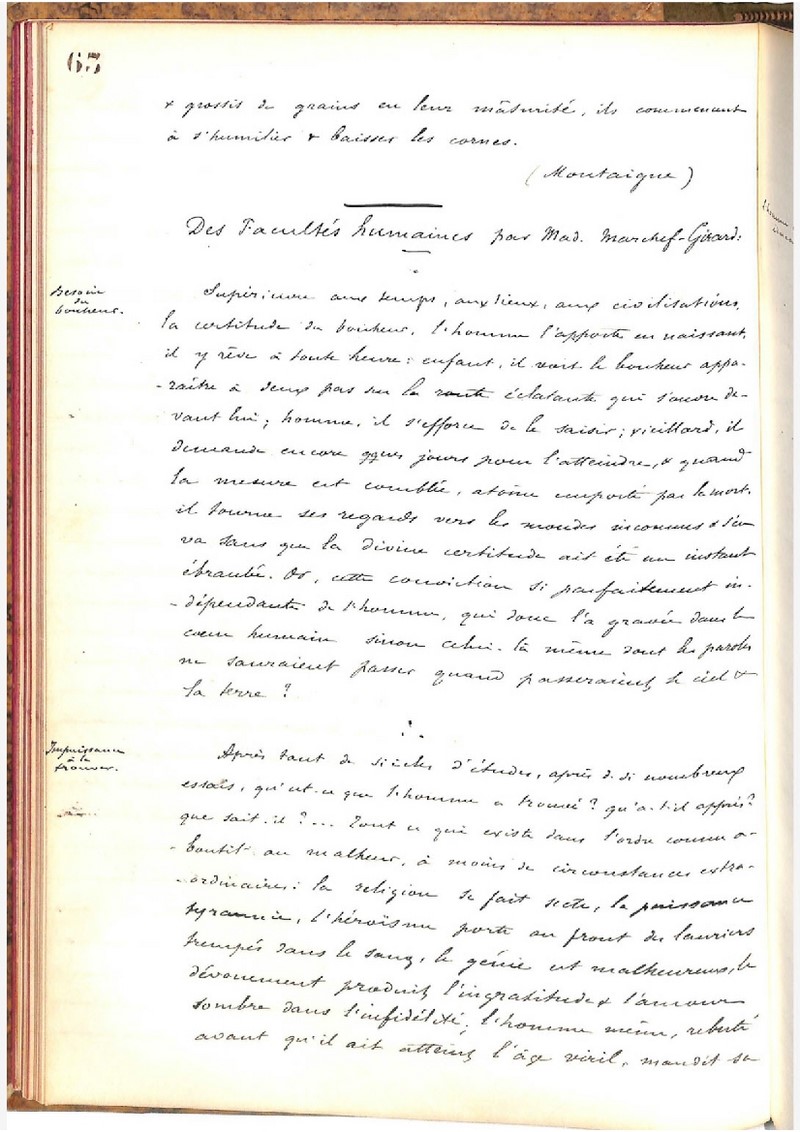 63
& grossis de grains en leur mâturité, ils commencent
à s'humilier & baisser les cornes.
(Montaigne)
Des Facultés humaines par Mad. Marchef-Girard:
Besoin
du
bonheur.
Supérieure aux temps, aux lieux, aux civilisations,
la certitude du bonheur, l'homme l'apporte en naissant,
il y rêve à toute heure: enfant, il voit le bonheur appa-
-raître à deux pas sur la route éclatante qui s'ouvre de-
vant lui; homme, il s'efforce de le saisir; vieillard, il
demande encore qques jours pour l'atteindre, & quand
la mesure est comblée, atôme emporté par la mort,
il tourne ses regards vers les mondes inconnus & s'en
va sans que la divine certitude ait été un instant
ébranlée. Or, cette conviction si parfaitement in-
-dépendante de l'homme, qui donc l'a gravée dans le
coeur humain sinon celui-là même dont les paroles
ne sauraient passer quand passeraient le ciel &
la terre?
Impuissance
à le
trouver.
Après tant de siècles d'études, après de si nombreux
essais, qu'est-ce que l'homme a trouvé? qu'a-t-il appris?
que sait-il?... Tout ce qui existe dans l'ordre connu a-
-boutit au malheur, à moins de circonstances extra-
-ordinaires: la religion se fait secte, la puissance
tyrannie, l'héroïsme porte au front des lauriers
trempés dans le sang, le génie est malheureux, le
dévouement produit l'ingratitude & l'amour
sombre dans l'infidélité; l'homme même, rebuté
avant qu'il ait atteint l'âge viril, maudit sa